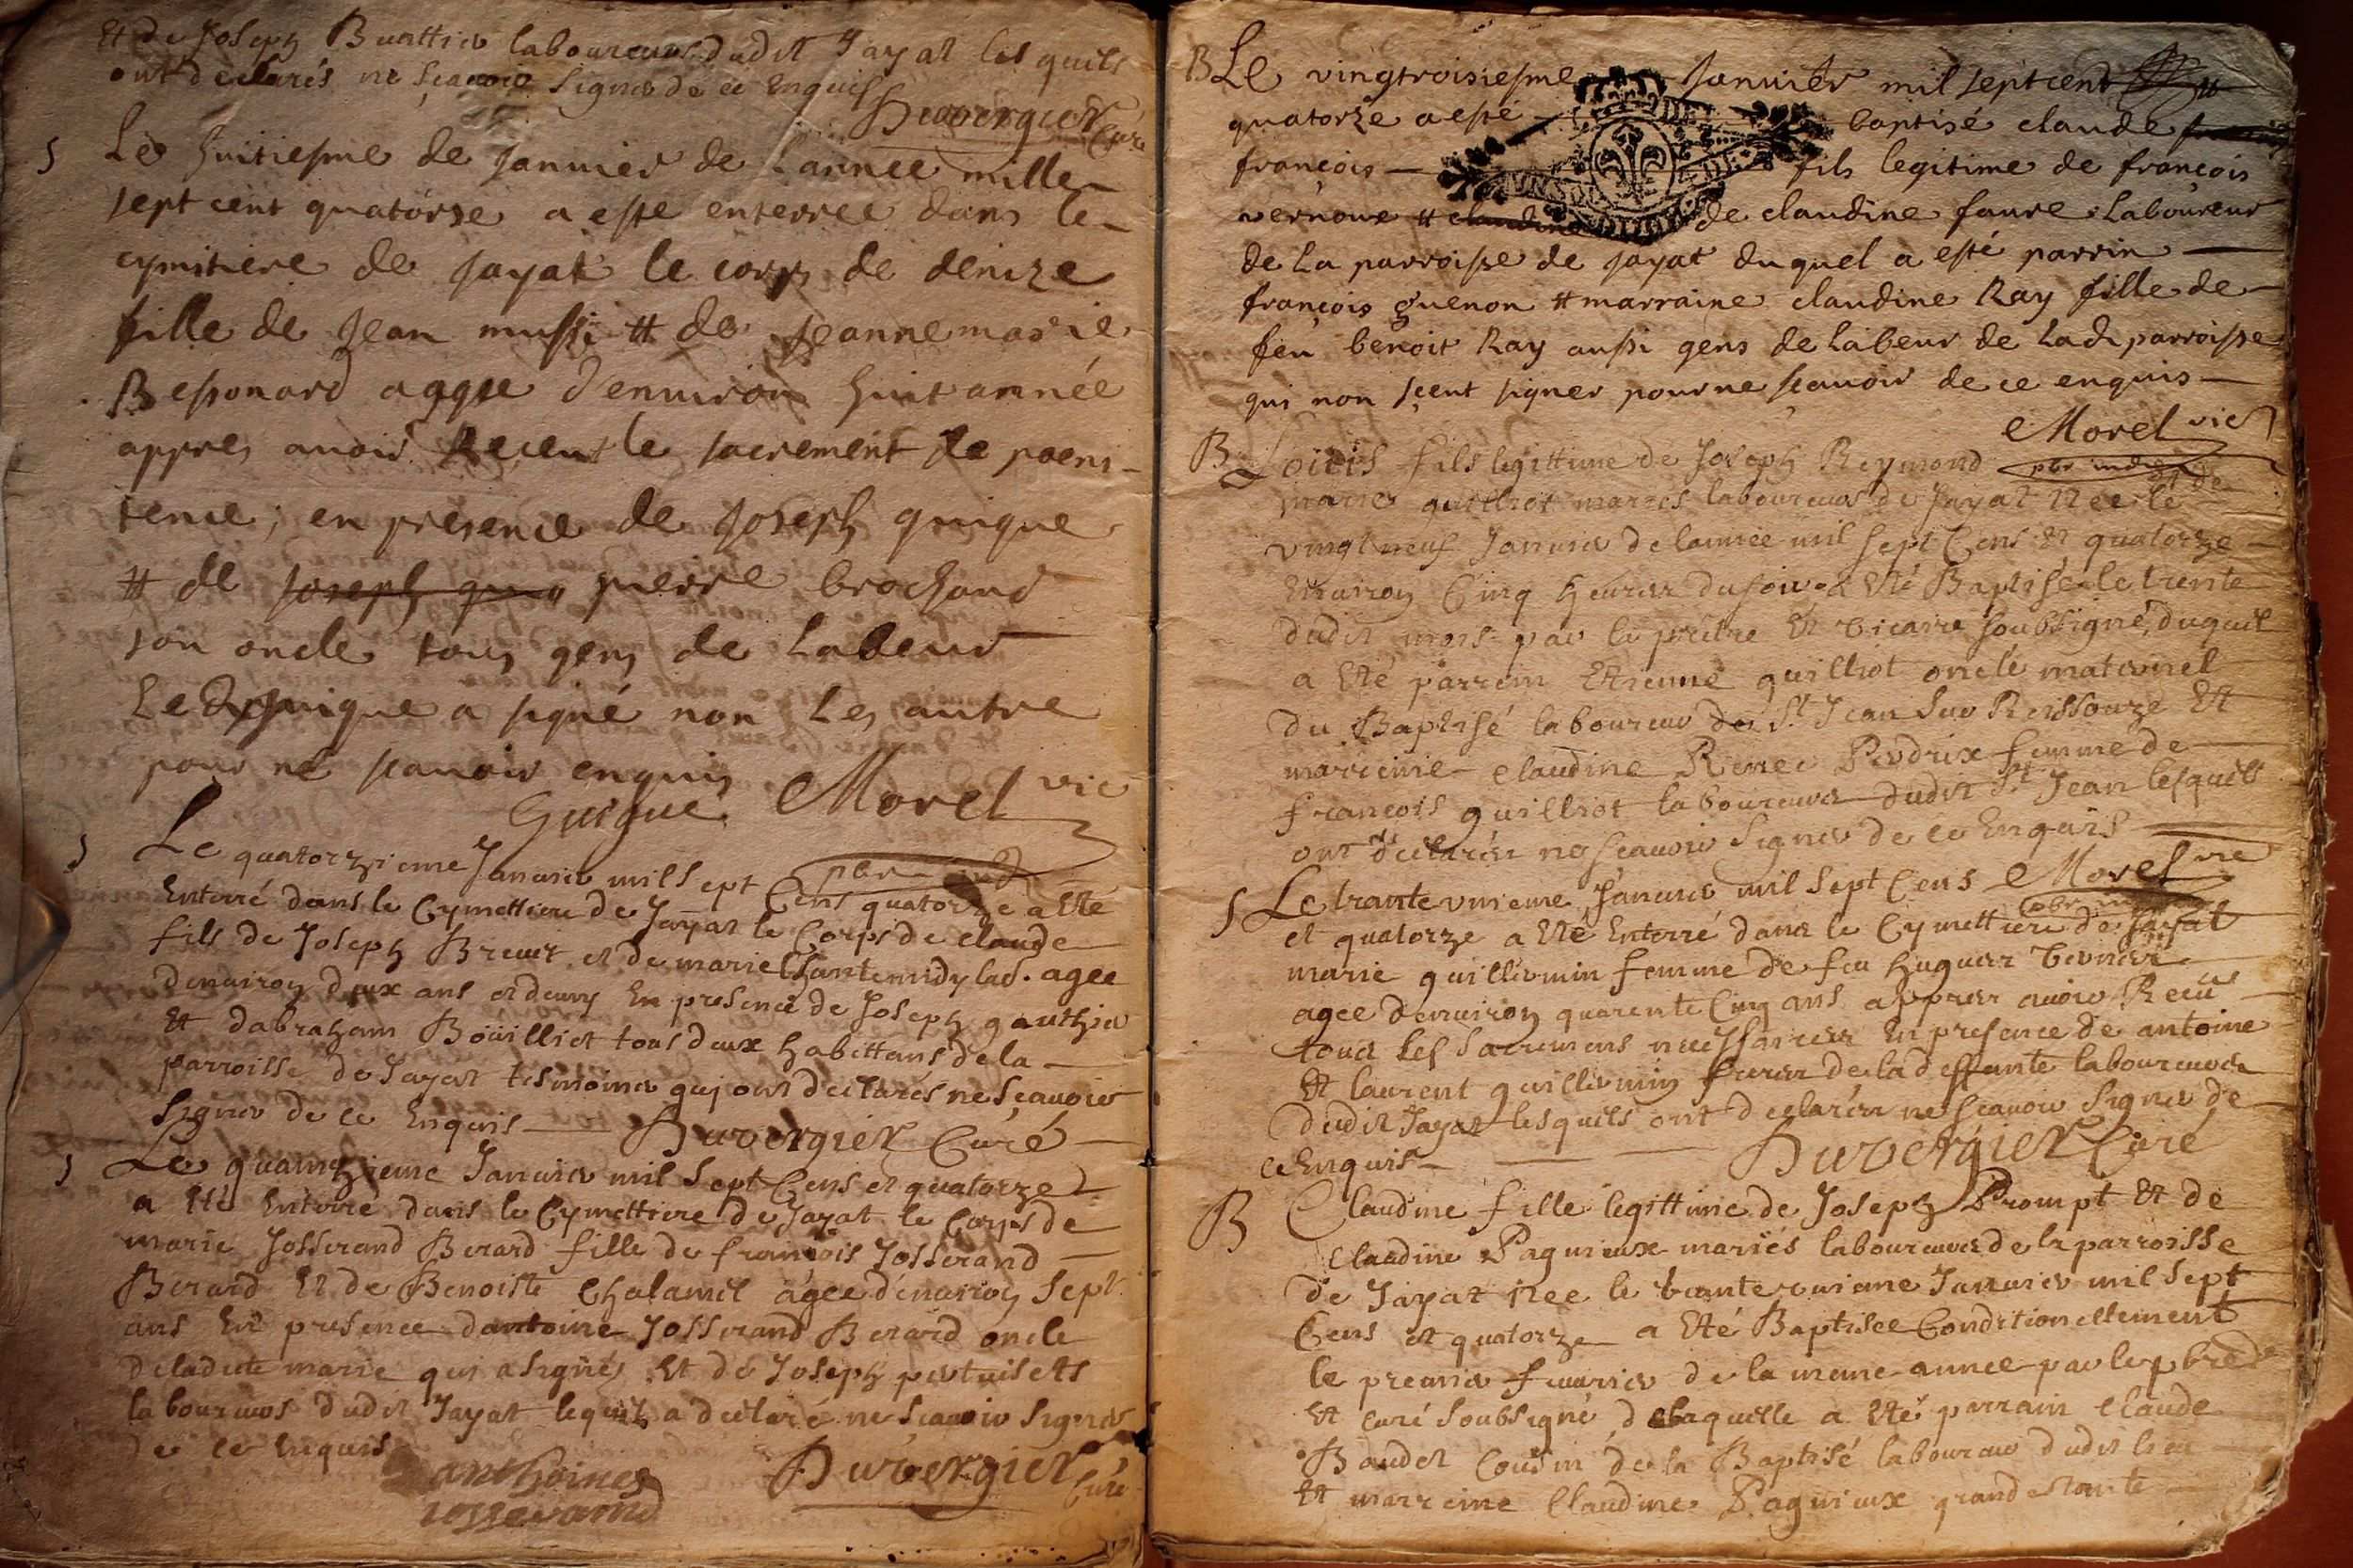 Et de Joseph Buattier laboureurs dudit Jayat lesquels
ont declarés ne sçavoir signer de ce Enquis
Duvergier Curé
S Le huitiesme de Janvier de Lannee mille
sept cent quatorze a este enterree dans le
cymitiere de Jayat le corps de denize
fille de Jean mussi et de Jeanne marie
Bessonard aggee denviron huit année
appres avoir Receu le sacrement de poeni-
tence, en presence de Joseph guigue
et de Joseph gui pierre brochand
son oncle tous gens de Labeur
Led guigue a signé non Les autre
pour ne scavoir enquis
Guigue Morel vic
pbr ind
S Le quatorzieme Janvier mil sept Cens quatorze a été
Enterré dans le Cymettiere de Jayat le Corps de claude
fils de Joseph Brevet et de marie Chantemidy lad. agee
denviron deux ans et demy En presence de Joseph gauthier
Et dabraham Boüilliet tous deux habittans de la
parroisse de Jayat tesmoins qui ont declarés ne sçavoir
signer de ce Enquis Duvergier Curé
S Le quainzieme Janvier mil sept Cens et quatorze
a été Enterré dans le Cymettiere de Jayat le Corps de
marie Josserand Berard fille de francois Josserand
Berard Et de Benoiste Chalamel agee denviron sept
ans En presence dantoine Josserand Berard oncle
deladitte marie qui a signés Et de Joseph pertuisets
laboureurs dudit Jayat lequel a declaré ne sçavoir signer
de ce Enquis
anthoines
iosserand
Duvergier Curé
B Le vingtroisiesme Janvier mil sept cent et
quatorze a esté baptisé claude
françois fils legitime de françois
vernoux et claudine de claudine faure Laboureur
de La parroisse de Jayat duquel a esté parrin
françois guenon et marraine claudine Ray fille de
feu benoit Ray aussi gens de Labeur de Lad parroisse
qui non sçeut signer pour ne scavoir de ce enquis
Morel vic
pbr ind
B Loüis fils legittime de Joseph Reymond et de
marie guilliot mariés laboureurs de Jayat née le
vingt neuf Janvier de lannée mil sept Cens Et quatorze
Environ Cinq heures du soir a été Baptisé le trente
dudit mois par le prêtre Et vicaire soubsigné, duquel
a été parrein Etienne guilliot oncle maternel
du Baptisé laboureur de St Jean sur Reissouze Et
marreine claudine Renee Perdrix femme de
françois guilliot laboureurs dudit St Jean lesquels
ont declarés ne scavoir signer de ce Enquis
Morel vic
pbr ind
S Le trante unieme Janvier mil sept Cens
et quatorze a été Enterré dans le Cymettiere de Jayat
marie guillermin femme de feu hugues
agee denviron quarente Cinq ans appres avoir Reçu
tous les sacremens necessaires En presence de antoine
Et laurent guillermin freres de la deffante laboureurs
dudit Jayat lesquels ont declarés ne scavoir signer de
ce Enquis Duvergier Curé
B Claudine fille legittime de Joseph Prompt Et de
claudine Pagnieux mariés laboureurs de la parroisse
de Jayat née le trante unieme Janvier mil sept
Cens et quatorze a été Baptisee Conditionellement
le premier fevrier de la meme annee par le pbre
Et curé soubsigné, de laquelle a été parrain claude
Baudet Cousin de la Baptisé laboureur dudit lieu
Et marreine Claudine Pagnieux grande tante